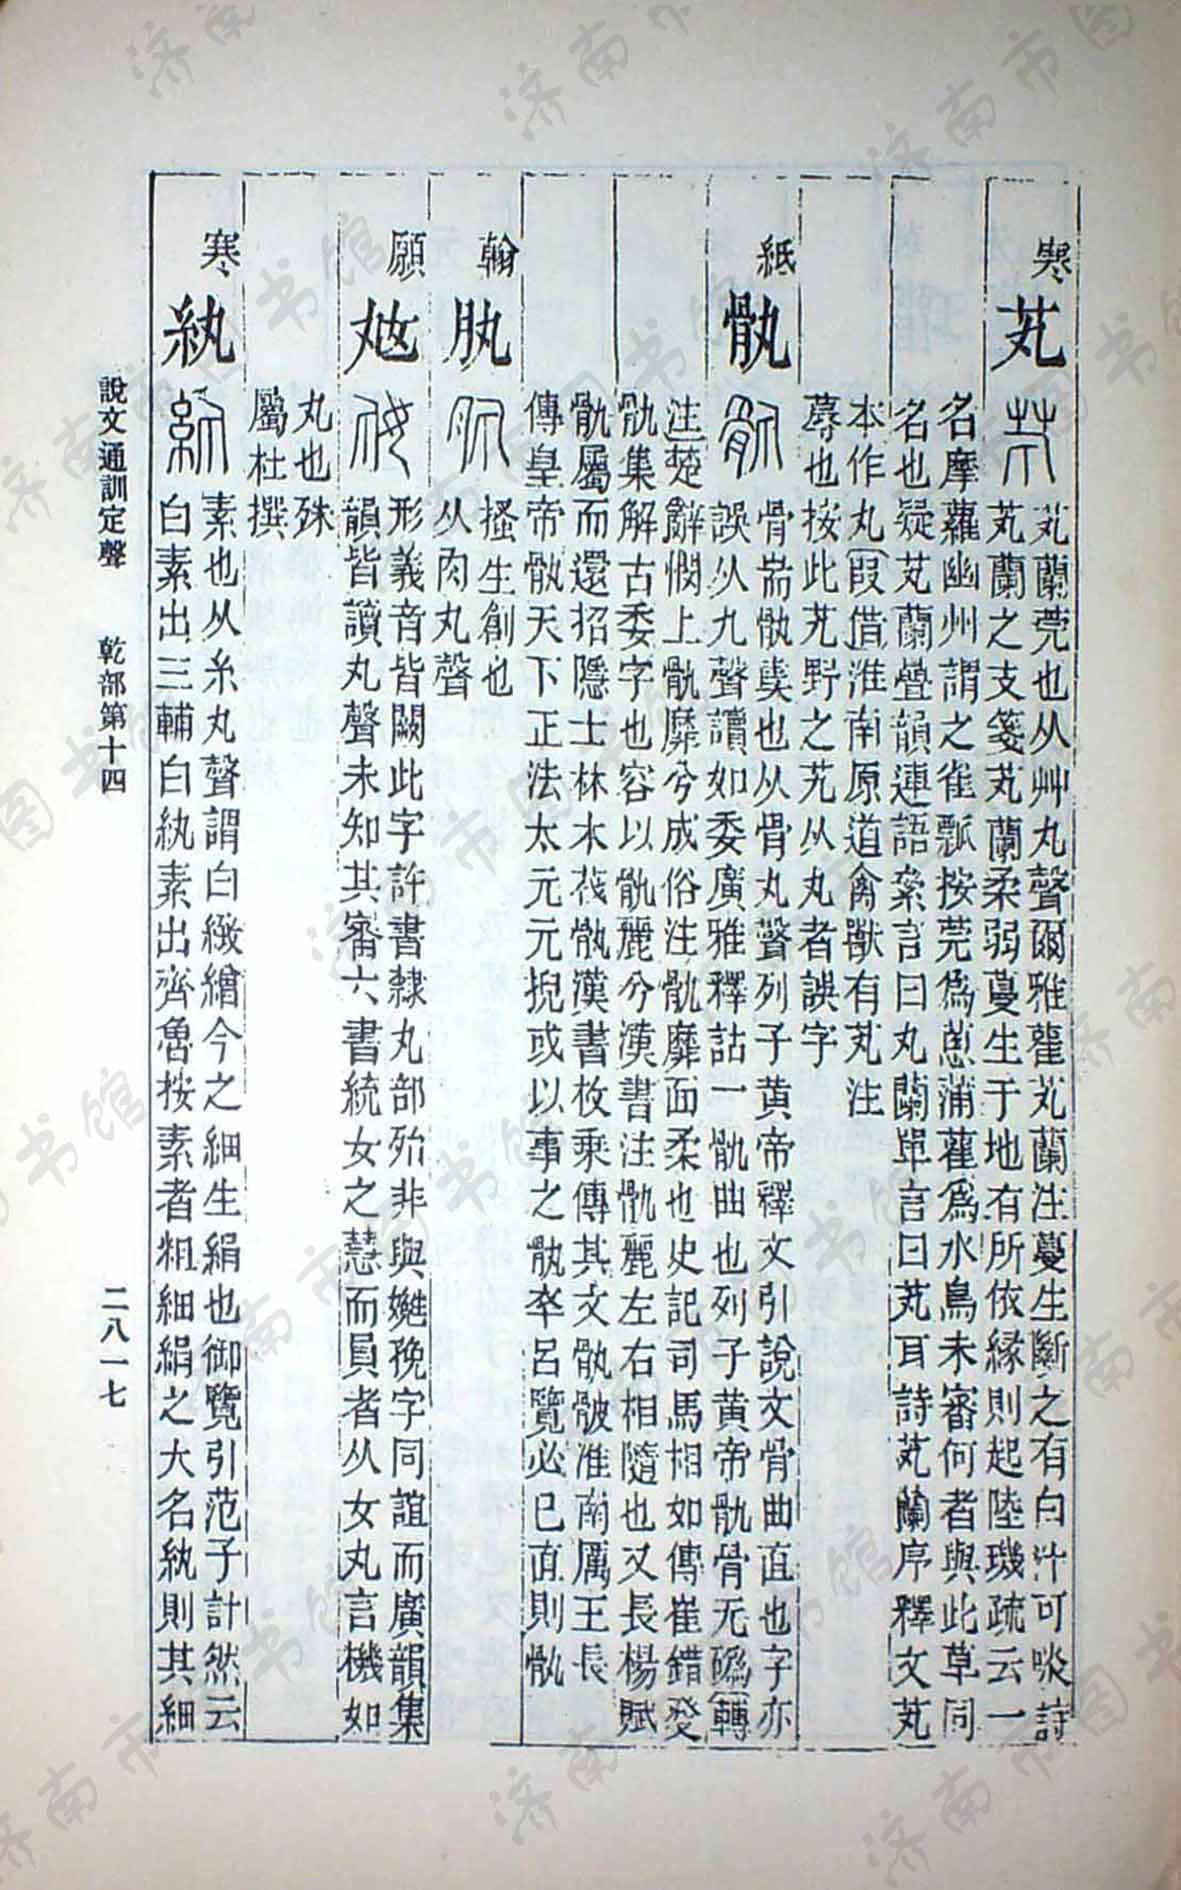 寒 芄
芄蘭莞也从艸丸聲爾雅雚芄蘭注蔓生斷之有白汁可啖詩
芄蘭之支箋芄蘭柔弱蔓生于地有所依緣則起陸璣疏云一
名摩蘿幽州謂之雀瓢按莞爲蔥蒲雚爲水鳥未審何者與此草同
名也疑芄蘭疊韻連語絫言曰丸蘭單言曰芄耳詩芄蘭序釋文芄
本作丸叚借淮南原道禽獸有芄注
蓐也按此艽野之艽从丸者誤字
紙 骫
骨耑骫奊也从骨丸聲列子黄帝釋文引說文骨曲直也字亦
誤从九聲讀如委廣雅釋詁一骩曲也列子黄帝骩骨无䃣轉
注楚辭憫上骩靡兮成俗注骩靡面柔也史記司馬相如傳崔錯癹
骩集解古委字也容以骩麗兮漢書注骩麗左右相隨也又長楊賦
骩屬而還招隱士林木茷骫漢書枚乘傳其文骫骳淮南厲王長
傳皇帝骫天下正法太元元掜或以事之骫卒呂覽必己直則骫
翰 肒
搔生創也
从肉丸聲
願 㚩
形義音皆闕此字許書隸丸部殆非與嬎㝃字同誼而廣韻集
韻皆讀丸聲未知其審六書統女之慧而員者从女丸言機如
丸也殊
屬杜撰
寒 紈
素也从糸丸聲謂白緻繒今之細生絹也御覽引范子計然云
白素出三輔白紈素出齊魯按素者粗細絹之大名紈則其細
說文通訓定聲 乾部第十四 二八一七
济南市图书馆